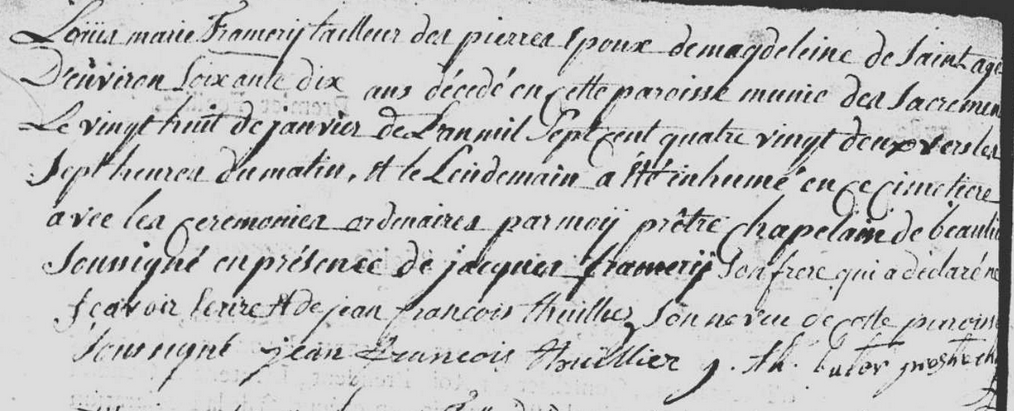 Loüis marie Framerÿ tailleur des pierres Epoux de magdeleine de Saint agé
D'environ Soixante dix ans décedé en Cette paroisse munie des Sacremen
Le vingt huit de janvier de L'an mil Sept Cent quatre vingt deux vers les
Sept heures du matin, et le Lendemain a été inhumé en ce Cimetiere
avec les Ceremonies ordinaires par moÿ prêtre chapelain de beaulie
Soussigné en présence de jacques framerÿ Son frere qui a déclaré ne
Sçavoir Ecrire et de jean francois thuillier Son neveu de cette paroisse
Soussigné jean francois thuillier